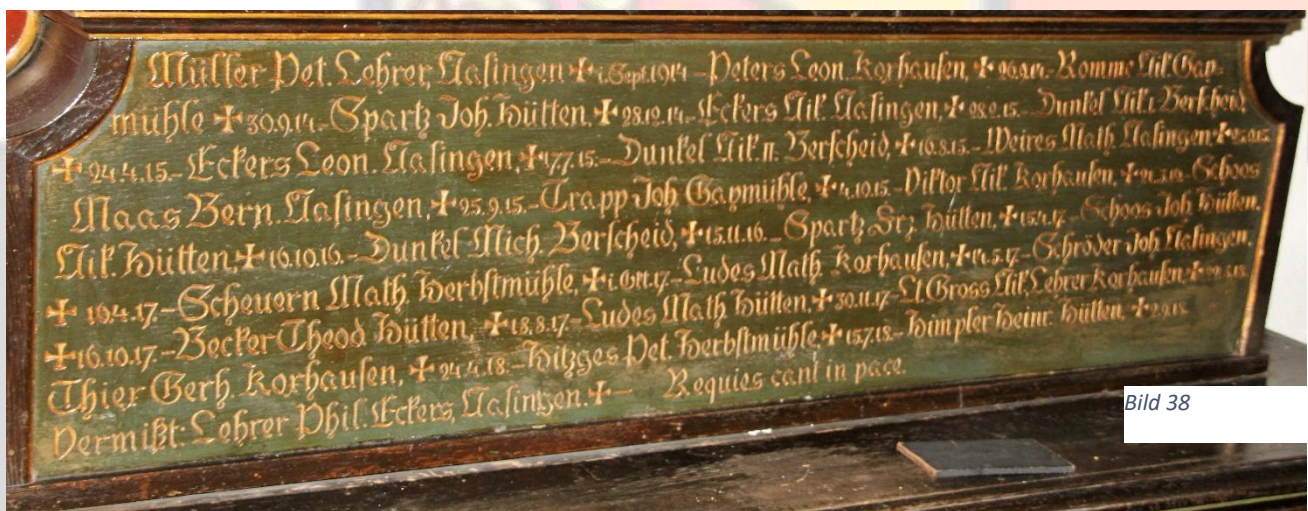 Müller Pet. Lehrer, Nasingen ✝ 1. Sept. 1914 – Peters Leon. Korhausen, ✝ 26.9.14.– Komme Nik. Gay-
mühle ✝ 30.9.14.– Spartz Joh. Hütten, ✝ 28.12.14.– Eckers Nik. Nasingen, ✝ 28.2.15.– Dunkel Nik. I. Berscheid,
✝ 24.4.15.– Eckers Leon. Nasingen, ✝ 17.7.15.– Dunkel Nik. II. Berscheid, ✝ 10.8.15.– Weires Math. Nasingen ✝
Maas Bern. Nasingen, ✝ 25.9.15.– Trapp Joh. Gaymühle, ✝ 4.10.15.– Viktor Nik. Korhausen, ✝ – Schoos
Nik. Hütten, ✝ 10.10.16.– Dunkel Mich. Berscheid, ✝ 15.11.16.– Spartz Frz. Hütten, ✝ 15.4.17.– Schoos Joh. Hütten,
✝ 19.4.17.– Scheuern Math. Herbstmühle, ✝ 1. Okt. 17.– Ludes Math. Korhausen, ✝ 14.5.17.– Schröder Joh. Nasingen,
✝ 16.10.17.– Becker Theod. Hütten, ✝ 18.8.17.– Ludes Math. Hütten, ✝ 30.11.17.– Lt. Gross Nik. Lehrer Korhausen ✝
Thier Gerh. Korhausen, ✝ 24.4.18.– Hitzges Pet. Herbstmühle ✝ 15.7.18.– Himpler Heinr. Hütten, ✝
Vermißt: Lehrer Phil. Eckers, Nasingen. ✝– Requies cant in pace.
Bild 38